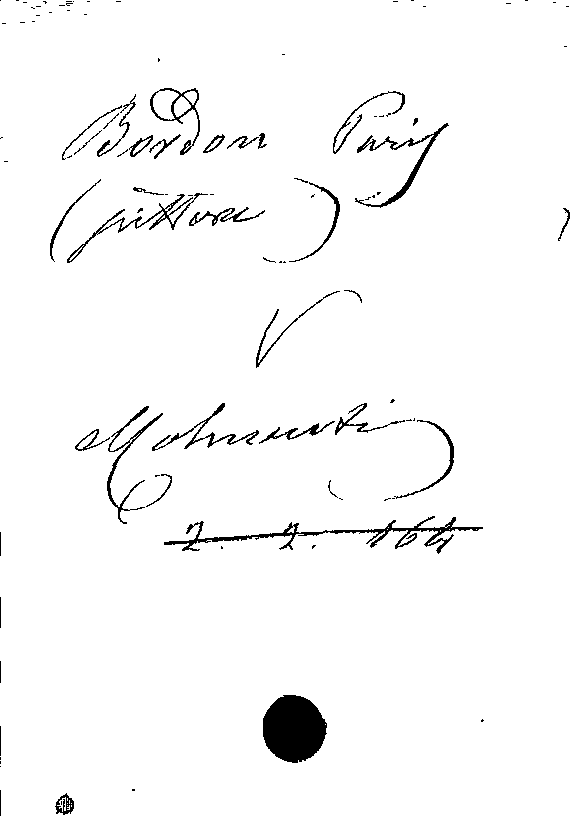 Bordon Paris
(pittore)
V
Molmenti
2. 2. 164